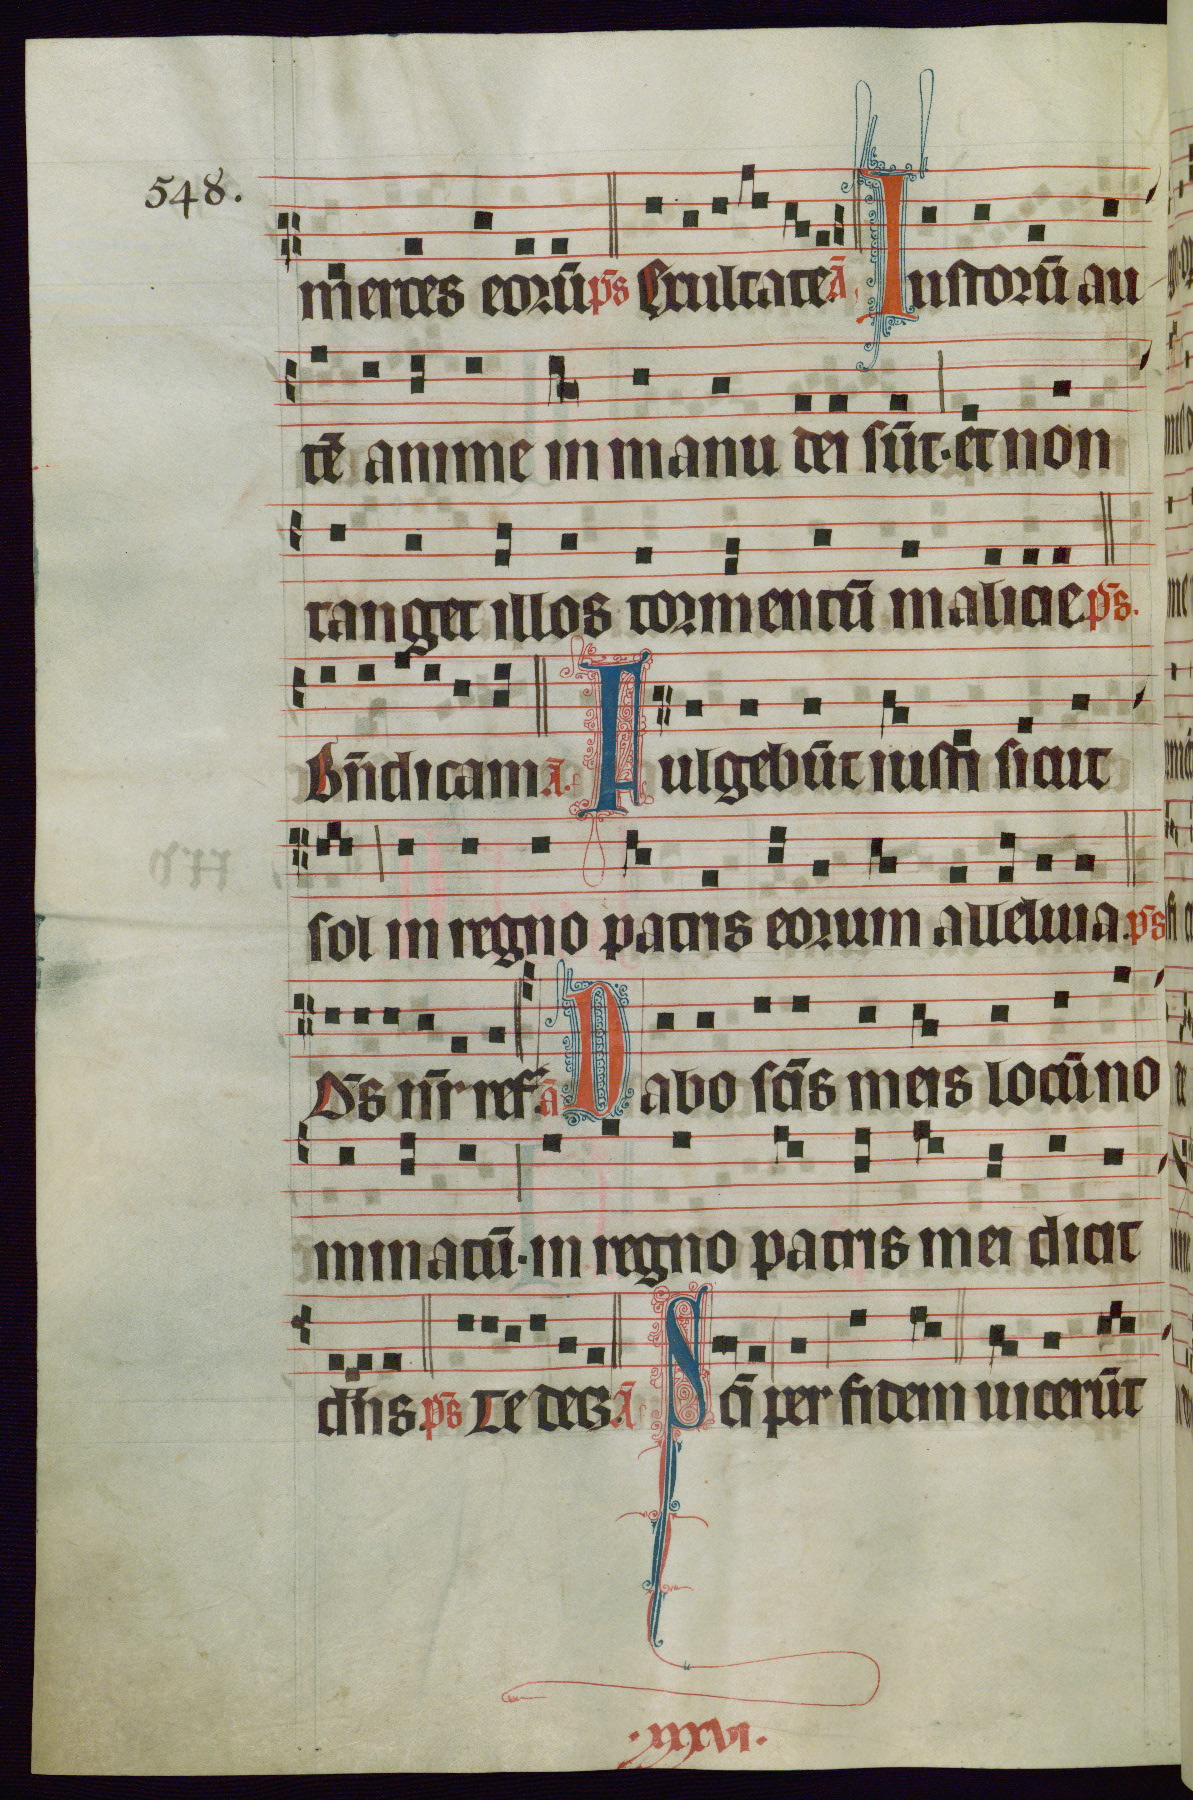 548.
mertes eorū ps̄ Exultate ā Iustorū au
tē anime in manu dei sūt· et non
tanget illos tormentū malicie ps̄.
Bn̄dicam ā. Fulgebūt iusti sicut
sol in regno patris eorum alleluia. ps̄
Ds̄ nr̄ ref. ā Dabo sc̄is meis locū no
minatū· in regno patris mei dicit
dn̄s. ps̄ Te dec3. ā Sc̄i per fidem uicerūt
.xxxvi.